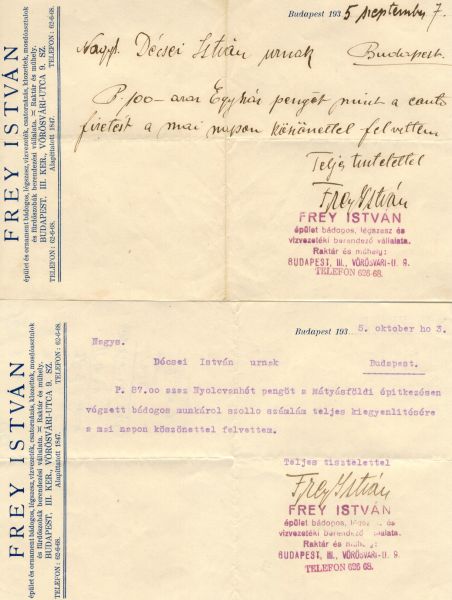 FREY ISTVÁN
épület és ornament bádogos, légszesz, vízvezeték, csatornázás, klozettek, mosdóasztalok
és fürdőszobák berendezési vállalata. Raktár és műhely.
BUDAPEST, III. KER., VÖRÖSVÁRI-UTCA 9. SZ.
TELEFON: 62-6-68. Alapíttatott 1847. TELEFON: 62-6-68.
Budapest 1935 september 7.
Nagys. Décsei István urnak Budapest.
P. 100 - azaz Egyszáz pengőt mint a
fizetést a mai napon köszönettel felvettem
Teljes tisztelettel
Frey István
FREY ISTVÁN
épület bádogos, légszesz és
vizvezetéki berendező vállalata.
Raktár és műhely:
BUDAPEST, III., VÖRÖSVÁRI-U. 9.
TELEFON 626-68.
FREY ISTVÁN
épület és ornament bádogos, légszesz, vízvezeték, csatornázás, klozettek, mosdóasztalok
és fürdőszobák berendezési vállalata. Raktár és műhely.
BUDAPEST, III. KER., VÖRÖSVÁRI-UTCA 9. SZ.
TELEFON: 62-6-68. Alapíttatott 1847. TELEFON: 62-6-68.
Budapest 193 5. oktober ho 3.
Nagys.
Décsei István urnak Budapest.
P. 87.00 azaz Nyolcvanhét pengőt a Mátyásföldi épitkezésen
végzett bádogos munkárol szollo számlám teljes kiegyenlitésére
a mai napon köszönettel felvettem.
Teljes tisztelettel
Frey István
FREY ISTVÁN
épület bádogos, légszesz és
vizvezetéki berendező vállalata.
Raktár és műhely:
BUDAPEST, III., VÖRÖSVÁRI-U. 9.
TELEFON 626 68.